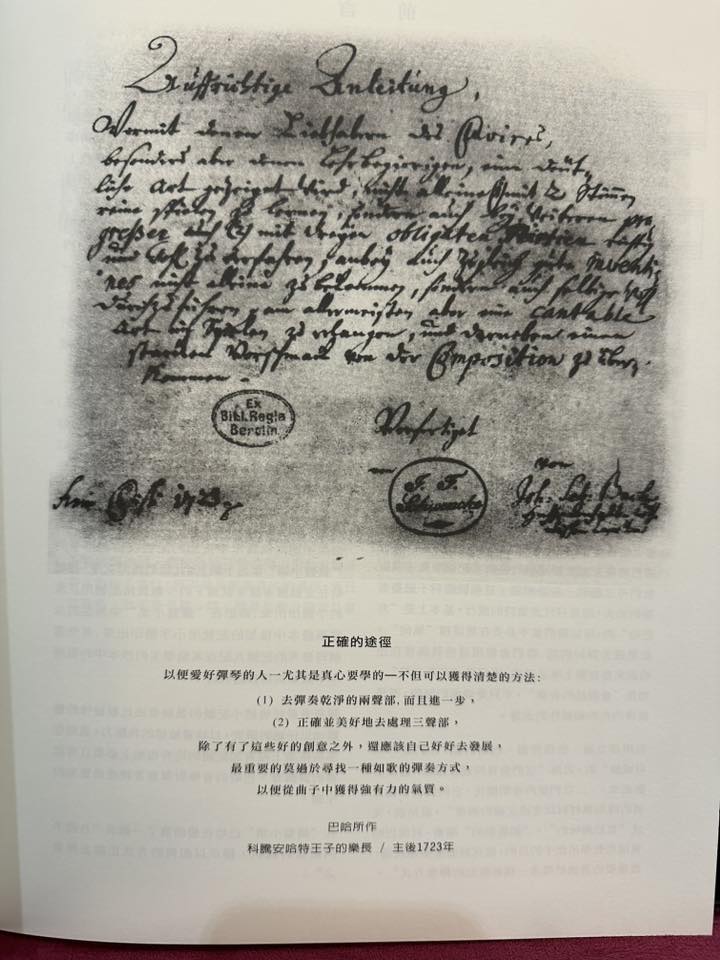 Auffrichtige Anleitung,
Wormit denen Liebhabern des Clavires,
besonders aber denen Lehrbegierigen, eine deüt-
liche Art gezeiget wird, nicht alleine mit 2 Stimen
reine spielen zu lernen, sondern auch bey weiteren pro-
greßen auch mit dreyen obligaten Partien
und wohl zu verfahren, anbey auch zugleich gute inventi-
ones nicht alleine zu bekommen, sondern auch selbige wohl
durchzuführen, am allermeisten aber eine cantable
Art im Spielen zu erlangen, und darneben einen
starcken Vorschmack von der Composition zu über-
kommen.
Ex
Bibl. Regia
Berolin.
Verfertiget
von
Joh. Seb. Bach
正確的途徑
以便愛好彈琴的人—尤其是真心要學的—不但可以獲得清楚的方法:
(1) 去彈奏乾淨的兩聲部,而且進一步,
(2) 正確並美好地去處理三聲部,
除了有了這些好的創意之外,還應該自己好好去發展,
最重要的莫過於尋找一種如歌的彈奏方式,
以便從曲子中獲得強有力的氣質。
巴哈所作
科騰安哈特王子的樂長 / 主後1723年